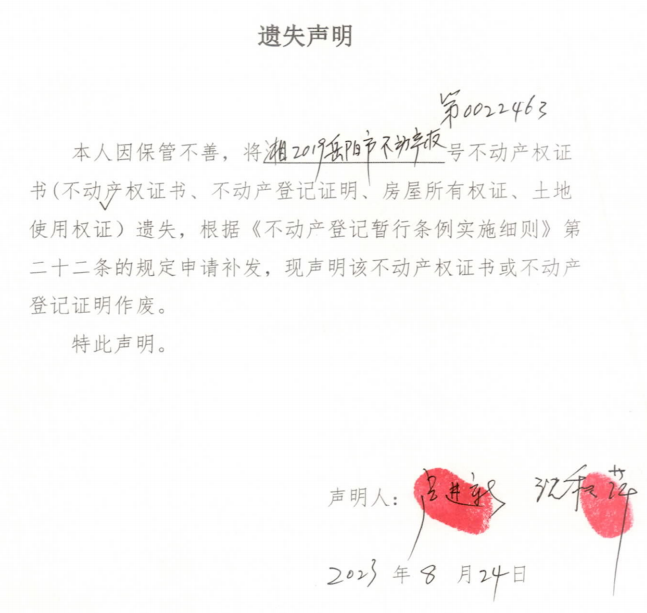 遗失声明
第0022463
本人因保管不善，将湘2019岳阳市不动产权号不动产权证
书(不动产权证书、不动产登记证明、房屋所有权证、土地
使用权证）遗失，根据《不动产登记暂行条例实施细则》第
二十二条的规定申请补发，现声明该不动产权证书或不动产
登记证明作废。
特此声明。
声明人：
2023年8月24日